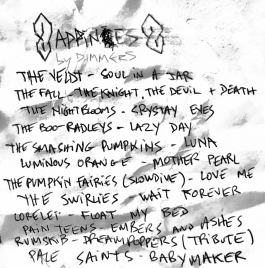 HAPPINESS
by DIMMERS
THE VELDT - SOUL IN A JAR
THE FALL - THE KNIGHT, THE DEVIL + DEATH
THE NIGHTBLOOMS - CRYSTAY EYES
THE BOO RADLEYS - LAZY DAY
THE SMASHING PUMPKINS - LUNA
LUMINOUS ORANGE - MOTHER PEARL
THE PUMPKIN FAIRIES (SLOWDIVE) - LOVE ME
THE SWIRLIES - WAIT FOREVER
LORELEI - FLOAT MY BED
PAIN TEENS - EMBERS AND ASHES
RUMSKIB - DREAMPOPPERS (TRIBUTE)
PALE SAINTS - BABY MAKER